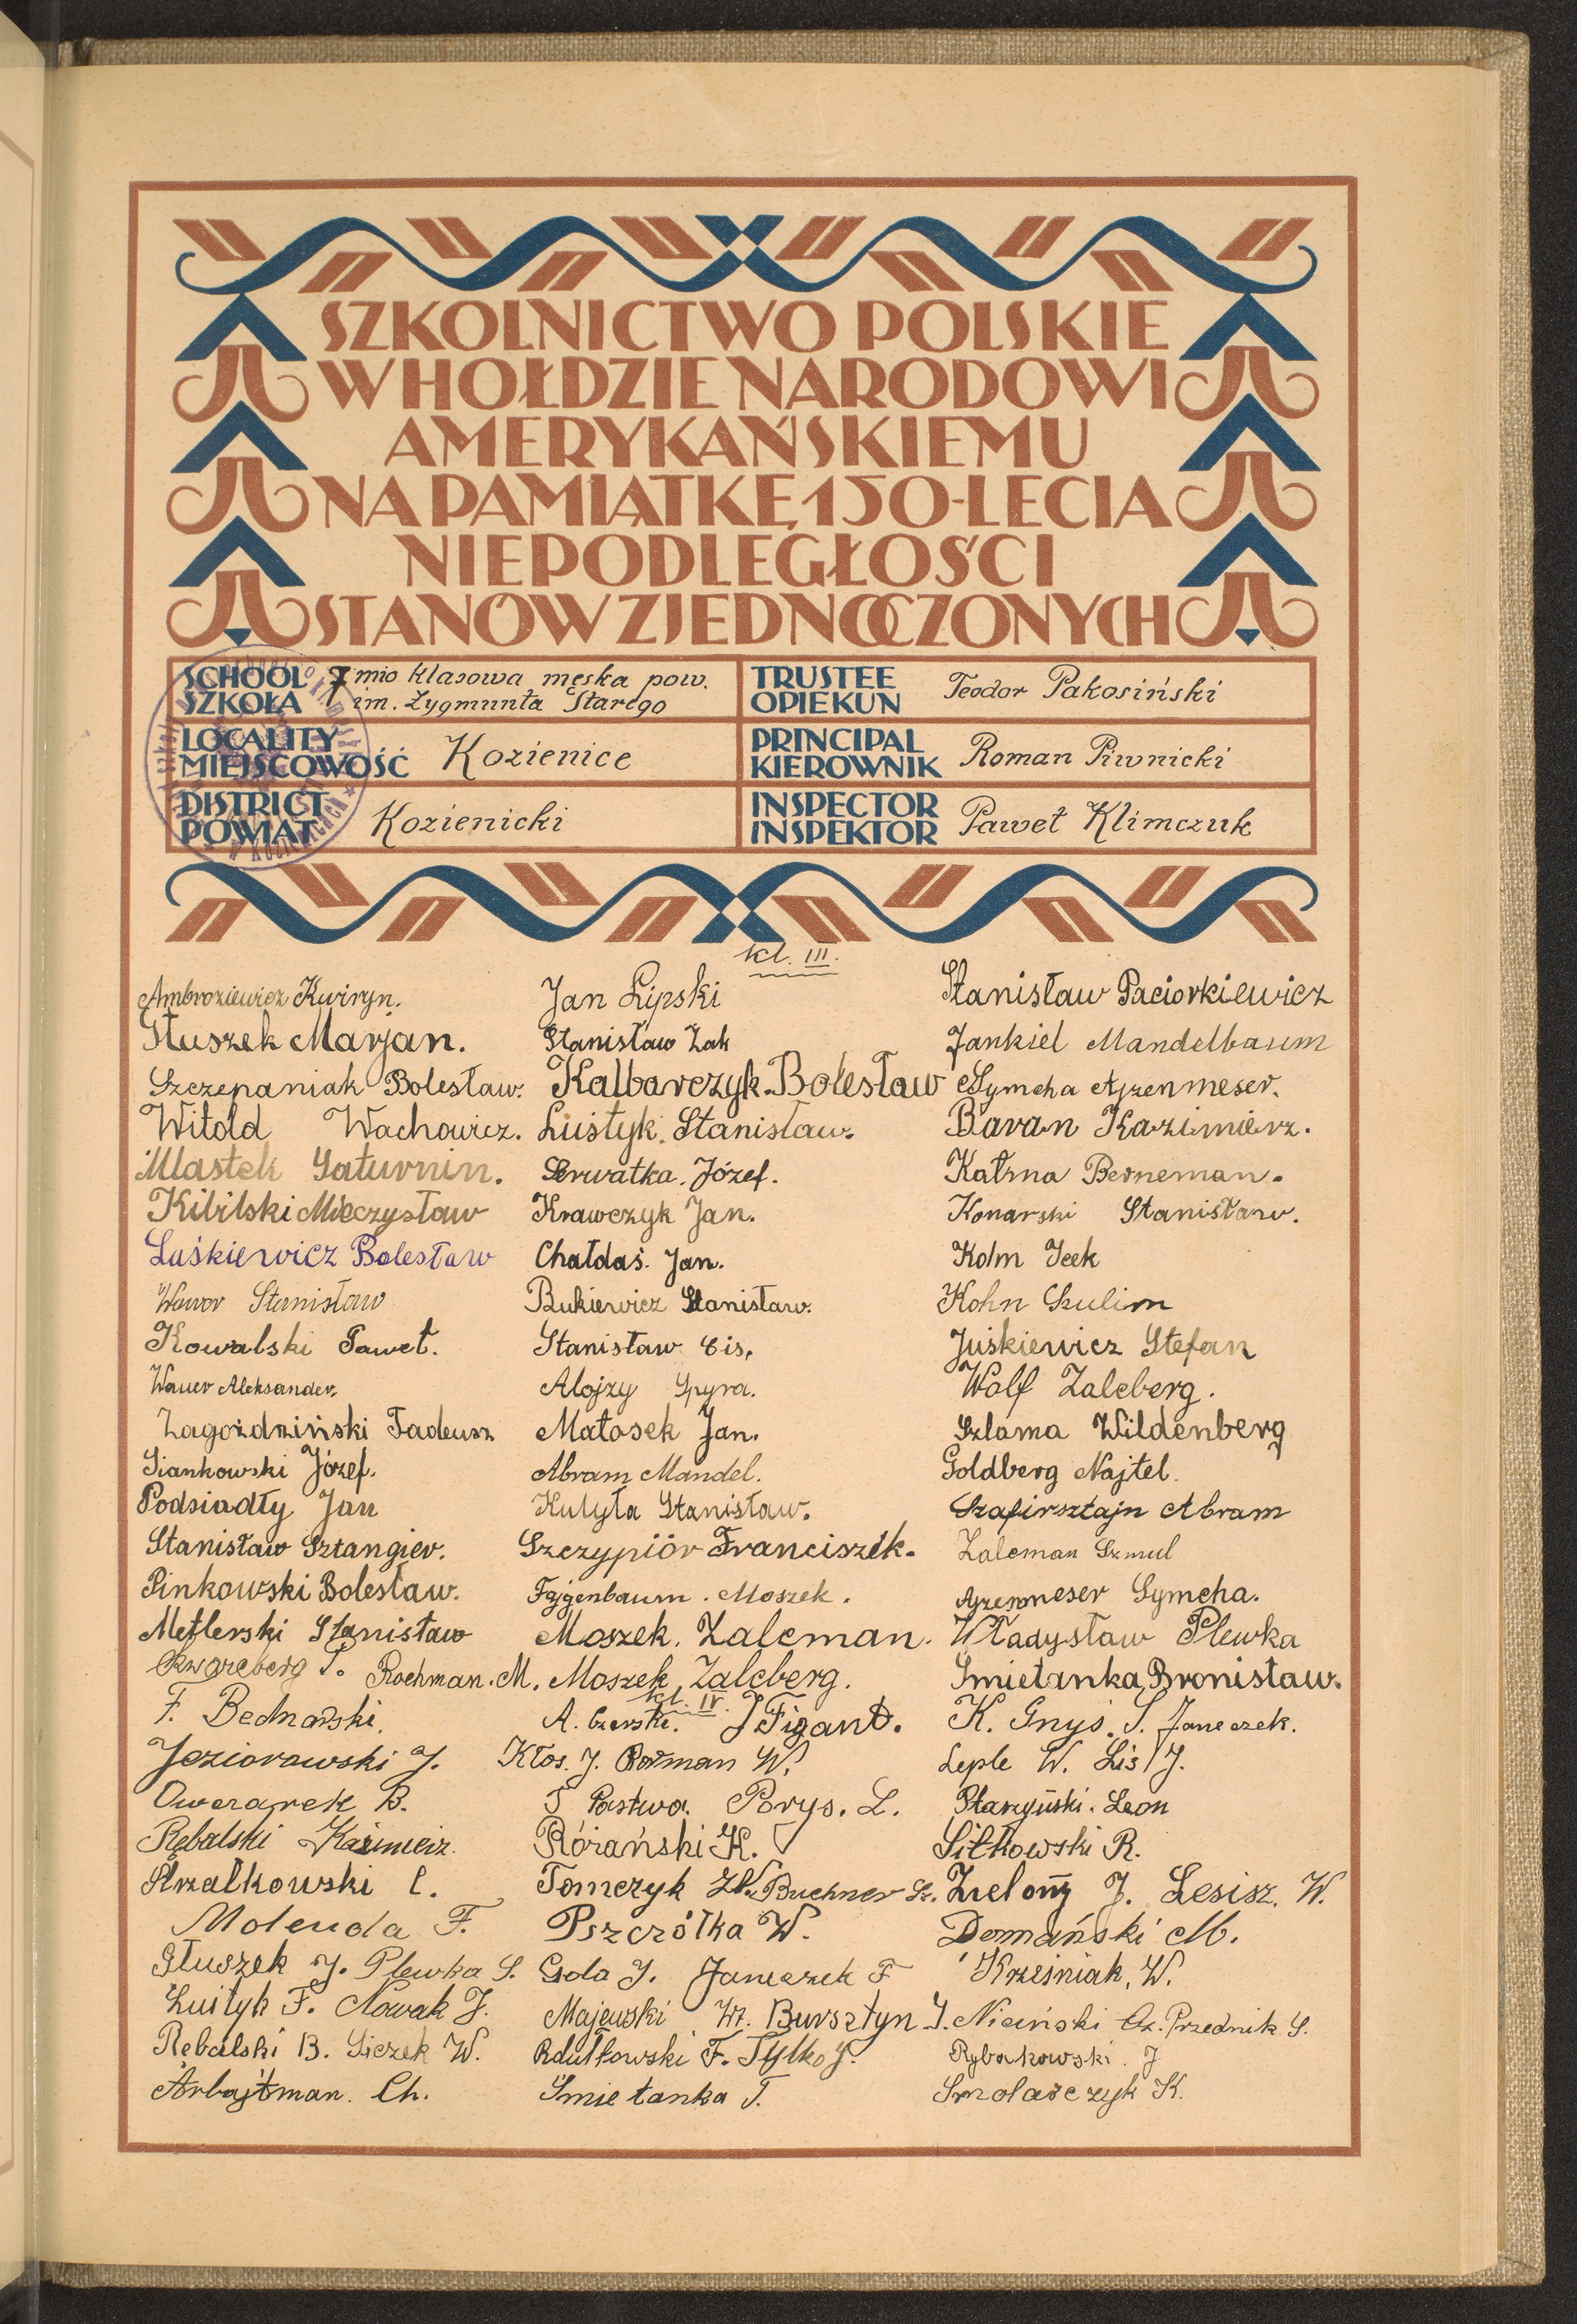 SZKOLNICTWO POLSKIE
W HOŁDZIE NARODOWI
AMERYKAŃSKIEMU
NA PAMIĄTKĘ 150-LECIA
NIEPODLEGŁOŚCI
STANÓW ZJEDNOCZONYCH
SCHOOL SZKOŁA 7 mio klasowa męska pow. im. Zygmunta Starego
TRUSTEE OPIEKUN Teodor Pakosiński
LOCALITY MIEJSCOWOŚĆ Kozienice
PRINCIPAL KIEROWNIK Roman Piwnicki
DISTRICT POWIAT Kozienicki
INSPECTOR INSPEKTOR Paweł Klimczuk
kl. III.
Ambroziewicz Kwiryn. Jan Lipski Stanisław Paciorkiewicz
Głuszek Marjan. Stanisław Żak Jankiel Mandelbaum
Szczepaniak Bolesław. Kalbarczyk Bolesław Symcha Ajzenmeser.
Witold Wachowicz. Luistyk. Stanisław. Baran Kazimierz.
Mlastek Saturnin. Serwatka. Józef. Kałma Berneman.
Kibilski Mieczysław Krawczyk Jan. Konarski Stanisław.
Luśkiewicz Bolesław Chałdaś. Jan. Kolm Icek
Wawor Stanisław Bukiewicz Stanisław. Kohn Szulim
Kowalski Paweł. Stanisław Cis. Juśkiewicz Stefan
Wawer Aleksander. Alojzy Spyra. Wolf Zalcberg.
Zagożdziński Tadeusz Matosek Jan. Szlama Wildenberg
Siankowski Józef. Abram Mandel. Goldberg Najtel.
Podsiadły Jan Kutyła Stanisław. Szafirsztajn Abram
Stanisław Sztangier. Szczypiór Franciszek. Zalcman Szmul
Pinkowski Bolesław. Fajgenbaum. Moszek. Ajzenmeser Symcha.
Metlerski Stanisław Moszek. Zalcman. Władysław Plewka
Rochman. M. Moszek Zalcberg. Śmietanka Bronisław.
kl. IV.
F. Bednarski. A. Czerski. J Figant. K. Gnyś. S. Janeczek.
Jeziorowski J. Kłos. J. W. Leple W. Lis J.
Owczarek B. Pastwa. Porys. L. Starzyński. Leon
Rębalski Kazimierz. Różański K. Sitkowski R.
Strzałkowski C. Tomczyk Buchner Sz. Zielony J. Lesisz. W.
Molenda F. Pszczółka W. Domański M.
Głuszek J. Plewka S. Goda J. Janeczek F Krześniak, W.
Luityk F. Nowak J. Majewski Wł. Bursztyn J. Niciński Cz. Przednik S.
Rębalski B. Siczek W. Rdułtowski F. Tylko J. Rybakowski. J
Arbajtman. Ch. Śmietanka T. Smolarczyk K.